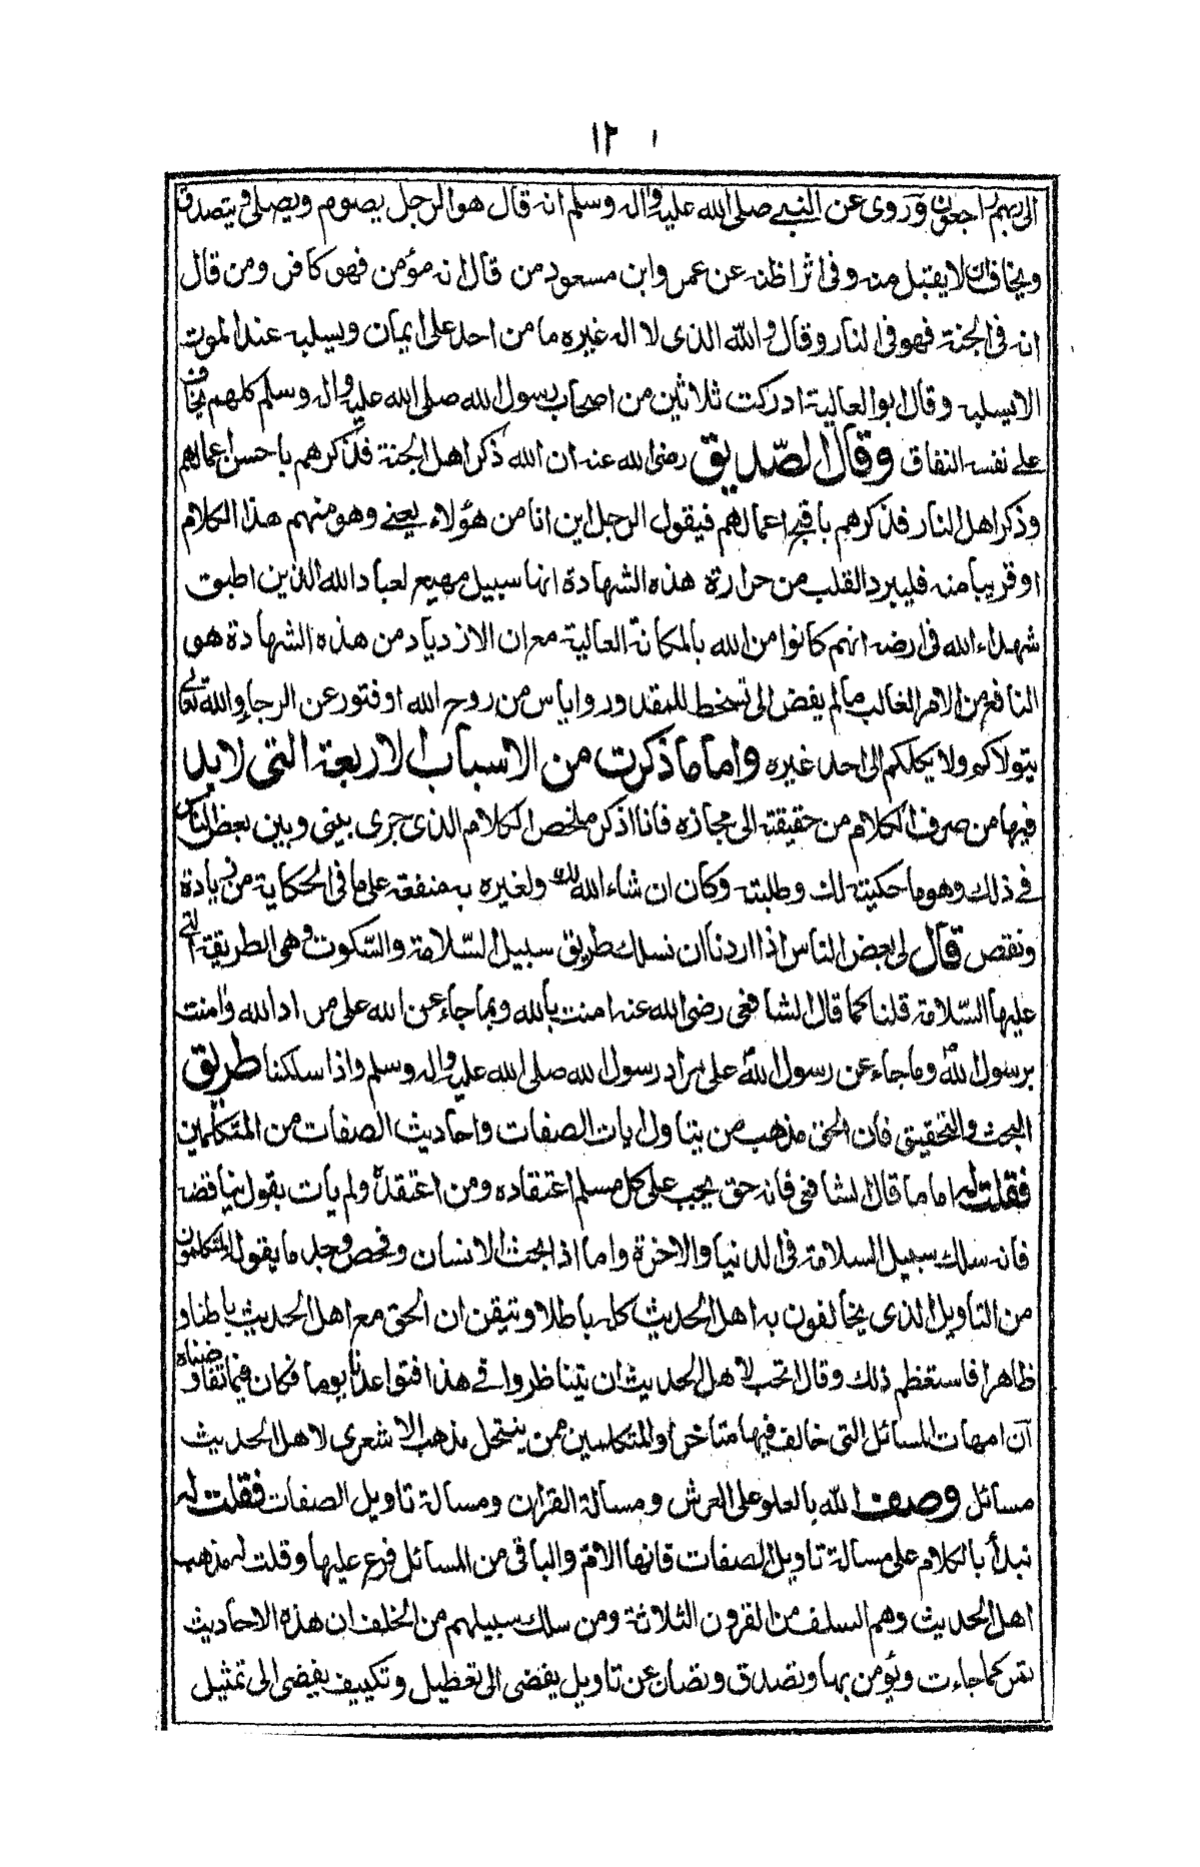 ١٢
الى ربهم راجعون وروى عن النبي صلى الله عليه واله وسلم انه قال هو الرجل يصوم ويصلى ويتصدق
ويخاف ان لا يقبل منه وفى اثر اظنه عن عمر وابن مسعود من قال انه مؤمن فهو كافر ومن قال
انه فى الجنة فهو فى النار وقال والله الذى لا اله غيره ما من احد على ايمان ويسلبه عند الموت
الا يسلبه وقال ابو العالية ادركت ثلاثين من اصحاب رسول الله صلى الله عليه واله وسلم كلهم يخاف
على نفسه النفاق وقال الصّديق رضى الله عنه ان الله ذكر اهل الجنة فذكرهم باحسن اعمالهم
وذكر اهل النار فذكرهم باقبح اعمالهم فيقول الرجل اين انا من هؤلاء يعنى وهو منهم هذا الكلام
او قريبا منه فليبرد القلب من حرارة هذه الشهادة انها سبيل مهيع لعباد الله الذين اطبق
شهداء الله فى ارضه انهم كانوا من الله بالمكانة العالية مع ان الازدياد من هذه الشهادة هو
النافع من الامر الغالب ما لم يفض الى تسخط للمقدور واياس من روح الله او فتور عن الرجا والله تعالى
يتولاكم ولا يكلكم الى احد غيره واما ما ذكرت من الاسباب الاربعة التى لابد
فيها من صرف الكلام من حقيقته الى مجازه فانا اذكر ملخص الكلام الذى جرى بينى وبين بعض الناس
فى ذلك وهو ما حكيته لك وطلبته وكان ان شاء الله لك ولغيره به منفعة على ما فى الحكاية من زيادة
ونقص قال لى بعض الناس اذا اردنا ان نسلك طريق سبيل السّلامة والسّكوت وهى الطريقة التى
عليها السّلامة قلنا كما قال الشافعى رضى الله عنه امنت بالله وبما جاء عن الله على مراد الله وامنت
برسول الله وما جاء عن رسول الله على مراد رسول الله صلى الله عليه واله وسلم واذا سلكنا طريق
البحث والتحقيق فان الحق مذهب من يتاول ايات الصفات واحاديث الصفات من المتكلمين
فقلت له اما ما قال الشافعى فانه حق يجب على كل مسلم اعتقاده ومن اعتقده ولم يات بقول يناقضه
فانه سلك سبيل السلامة فى الدنيا والاخرة واما اذا بحث الانسان وفحص وجد ما يقوله المتكلمون
من التاويل الذى يخالفون به اهل الحديث كله باطلا وتيقن ان الحق مع اهل الحديث باطنا و
ظاهرا فاستعظم ذلك وقال اتحب لاهل الحديث ان يتناظروا فى هذا فتواعدنا يوما فكان فيما تفاوضناه
ان امهات المسائل التى خالف فيها متاخروا المتكلمين ممن ينتحل مذهب الاشعرى لاهل الحديث
مسائل وصف الله بالعلو على العرش ومسالة القران ومسالة تاويل الصفات فقلت له
نبدأ بالكلام على مسالة تاويل الصفات فانها الامّ والباقى من المسائل فرع عليها وقلت له مذهب
اهل الحديث وهم السلف من القرون الثلاثة ومن سلك سبيلهم من الخلف ان هذه الاحاديث
تمر كما جاءت ويؤمن بها وتصدق وتصان عن تاويل يفضى الى تعطيل وتكييف يفضى الى تمثيل